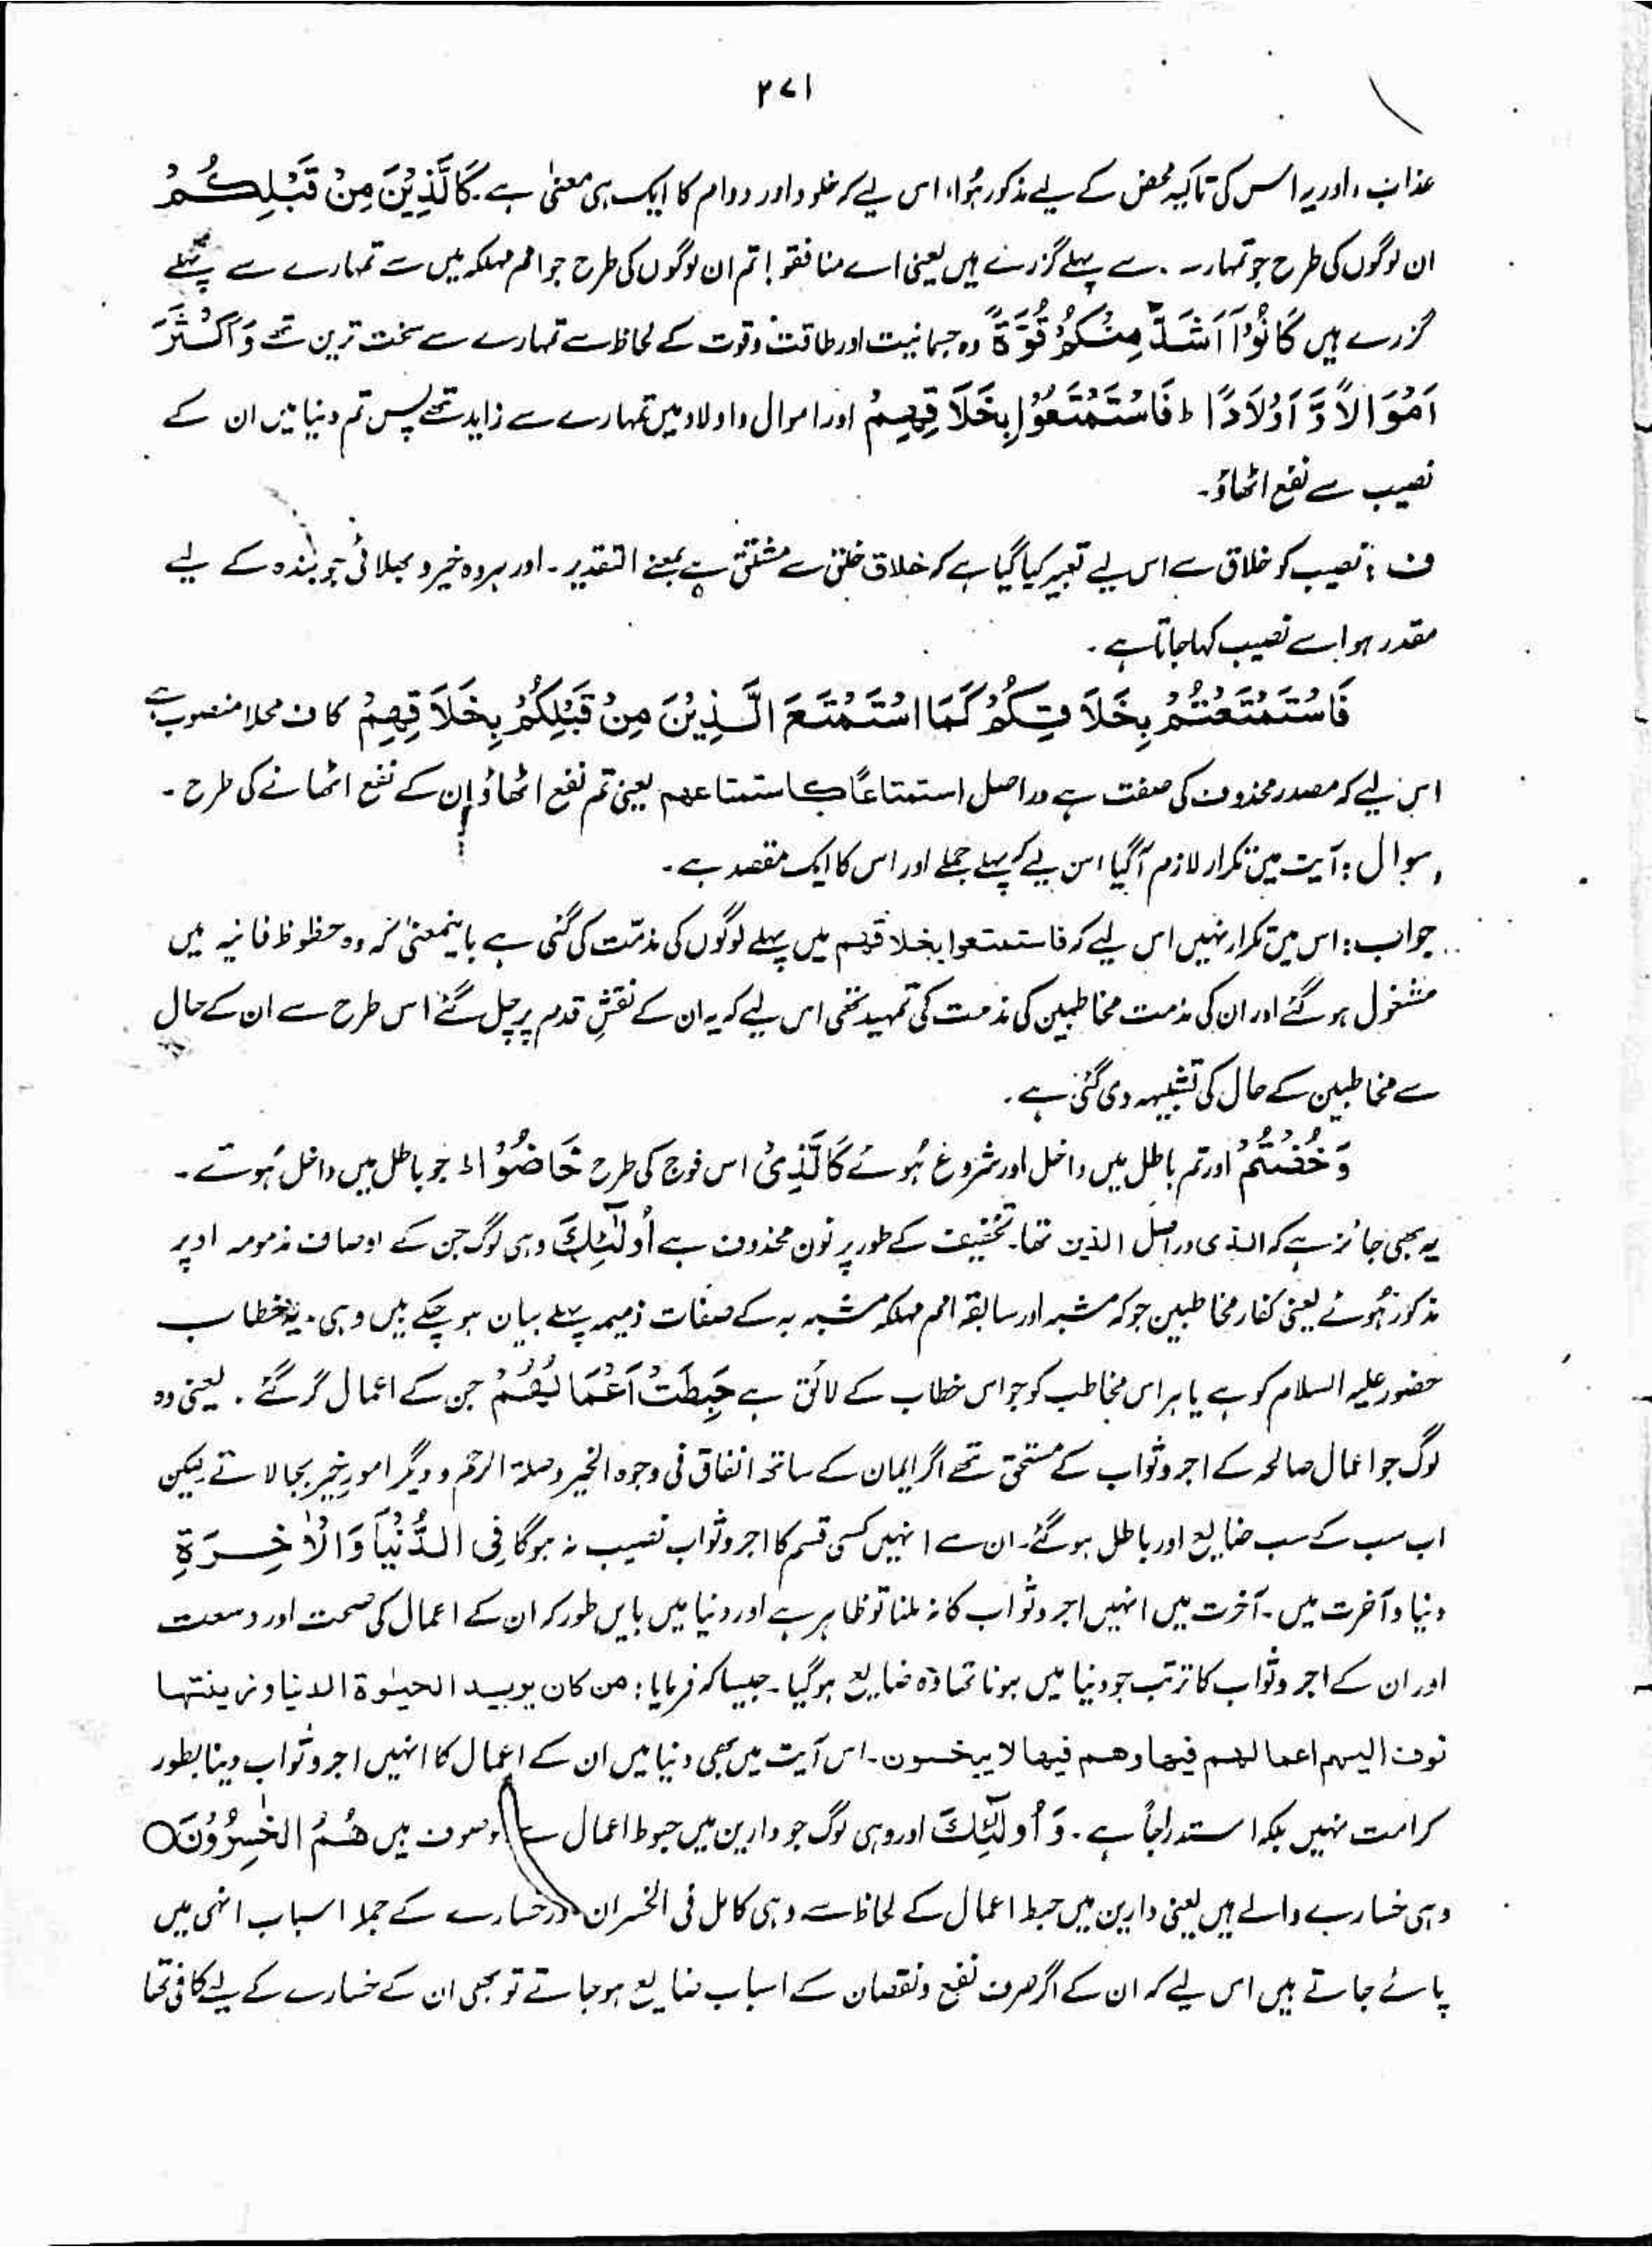 ۲۷۱
عذاب، اور یہ اس کی تاکید محض کے لیے مذکور ہُوا، اس لیے کہ خلود اور دوام کا ایک ہی معنیٰ ہے۔ كَالَّذِيْنَ مِنْ قَبْلِكُمْ
ان لوگوں کی طرح جو تمہارے سے پہلے گزرے ہیں یعنی اے منافقو! تم ان لوگوں کی طرح جو امم مہلکہ میں سے تمہارے سے پہلے
گزرے ہیں كَانُوْٓا اَشَدَّ مِنْكُمْ قُوَّةً وہ جسمانیت اور طاقت و قوت کے لحاظ سے تمہارے سے سخت ترین تھے وَّ اَكْثَرَ
اَمْوَالًا وَّ اَوْلَادًا ط فَاسْتَمْتَعُوْا بِخَلَاقِهِمْ اور اموال و اولاد میں تمہارے سے زاید تھے پس تم دنیا میں ان کے
نصیب سے نفع اٹھاؤ۔
ف : نصیب کو خلاق سے اس لیے تعبیر کیا گیا ہے کہ خلاق خلق سے مشتق ہے بمعنے التقدیر۔ اور ہر وہ خیر و بھلائی جو بندہ کے لیے
مقدر ہو اسے نصیب کہا جاتا ہے۔
فَاسْتَمْتَعْتُمْ بِخَلَاقِكُمْ كَمَا اسْتَمْتَعَ الَّذِيْنَ مِنْ قَبْلِكُمْ بِخَلَاقِهِمْ کاف محلاً منصوب ہے
اس لیے کہ مصدر محذوف کی صفت ہے دراصل استمتاعًا كاستمتاعهم یعنی تم نفع اٹھاؤ ان کے نفع اٹھانے کی طرح۔
سوال : آیت میں تکرار لازم آگیا اس لیے کہ پہلے جملے اور اس کا ایک مقصد ہے۔
جواب : اس میں تکرار نہیں اس لیے کہ فاستمتعوا بخلاقهم میں پہلے لوگوں کی مذمّت کی گئی ہے باینمعنیٰ کہ وہ حظوظ فانیہ میں
مشغول ہو گئے اور ان کی مذمت مخاطبین کی مذمت کی تمہید تھی اس لیے کہ یہ ان کے نقشِ قدم پر چل گئے اس طرح سے ان کے حال
سے مخاطبین کے حال کی تشبیہہ دی گئی ہے۔
وَ خُضْتُمْ اور تم باطل میں داخل اور شروع ہُوئے كَالَّذِيْ اس فوج کی طرح خَاضُوْا ط جو باطل میں داخل ہُوئے۔
یہ بھی جائز ہے کہ الذی دراصل الذین تھا۔ تخفیف کے طور پر نون محذوف ہے اُولٰٓئِكَ وہی لوگ جن کے اوصاف مذمومہ اوپر
مذکور ہُوئے یعنی کفار مخاطبین جو کہ مشبہ اور سابقہ امم مہلکہ مشبہ بہ کے صفات ذمیمہ پہلے بیان ہو چکے ہیں وہی۔ یہ خطاب
حضور علیہ السلام کو ہے یا ہر اس مخاطب کو جو اس خطاب کے لائق ہے حَبِطَتْ اَعْمَالُهُمْ جن کے اعمال گر گئے۔ یعنی وہ
لوگ جو اعمال صالحہ کے اجر و ثواب کے مستحق تھے اگر ایمان کے ساتھ انفاق فی وجوہ الخیر وصلۃ الرحم و دیگر امور خیر بجالاتے لیکن
اب سب کے سب ضایع اور باطل ہو گئے۔ ان سے انہیں کسی قسم کا اجر و ثواب نصیب نہ ہوگا فِى الدُّنْيَا وَالْاٰخِرَةِ
دنیا و آخرت میں۔ آخرت میں انہیں اجر و ثواب کا نہ ملنا تو ظاہر ہے اور دنیا میں بایں طور کہ ان کے اعمال کی صحت اور وسعت
اور ان کے اجر و ثواب کا ترتب جو دنیا میں ہونا تھا وہ ضایع ہوگیا۔ جیسا کہ فرمایا : من كان يريد الحيوٰة الدنيا و زينتها
نوف اليهم اعمالهم فيها وهم فيها لا يبخسون۔ اس آیت میں بھی دنیا میں ان کے اعمال کا انہیں اجر و ثواب دینا بطور
کرامت نہیں بلکہ استدراجاً ہے۔ وَ اُولٰٓئِكَ اور وہی لوگ جو دارین میں حبوط اعمال سے موصوف ہیں هُمُ الْخٰسِرُوْنَ○
وہی خسارے والے ہیں یعنی دارین میں حبط اعمال کے لحاظ سے وہی کامل فی الخسران اور خسارے کے جملہ اسباب انہی میں
پائے جاتے ہیں اس لیے کہ ان کے اگر صرف نفع و نقصان کے اسباب ضایع ہو جاتے تو بھی ان کے خسارے کے لیے کافی تھا